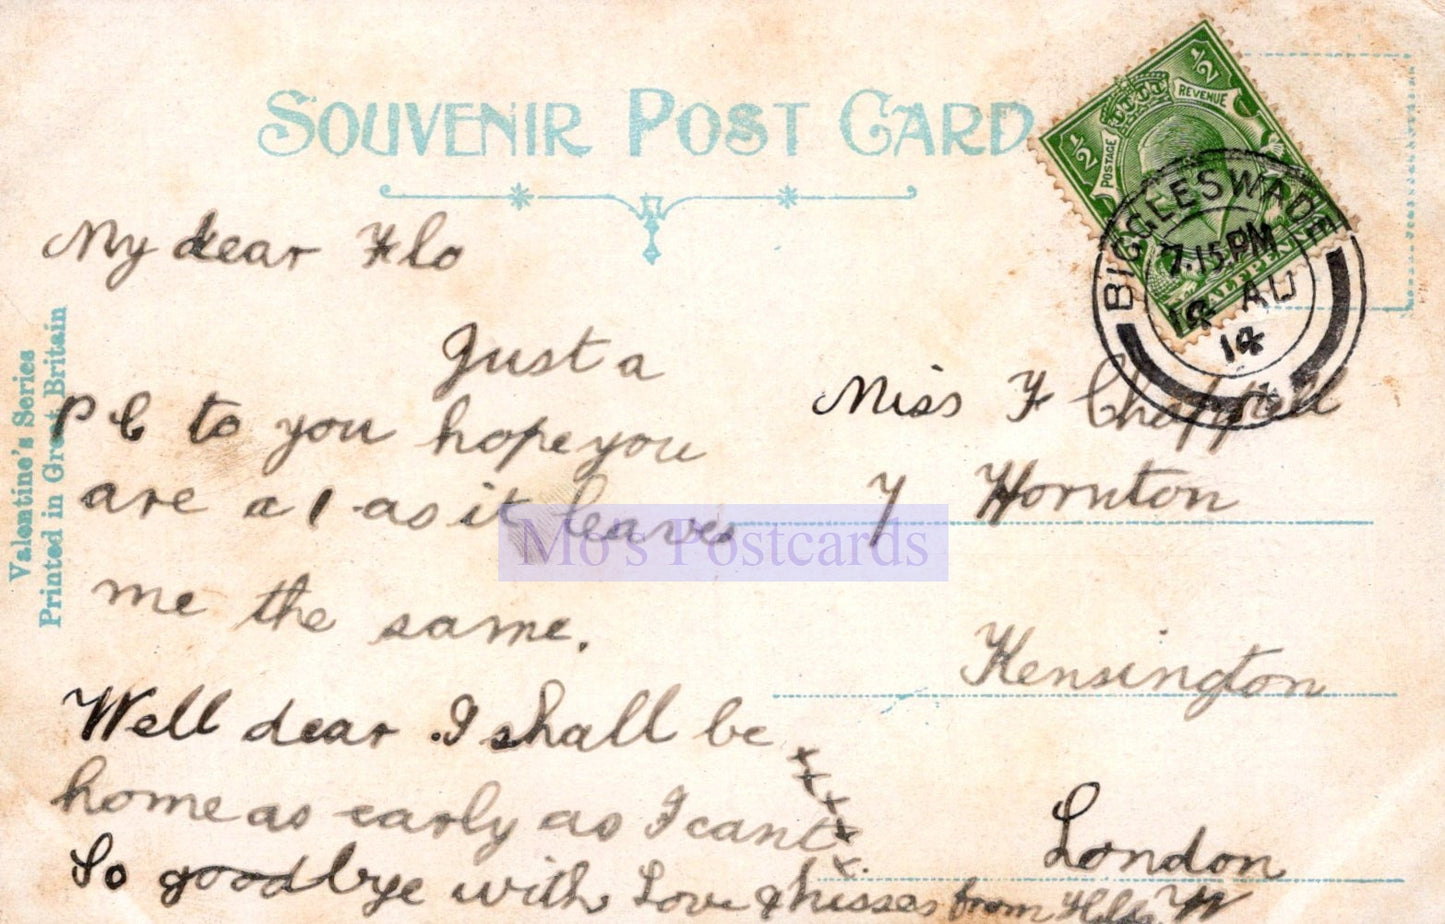 SOUVENIR POST CARD
½ ½
POSTAGE REVENUE
HALFPENNY
BIGGLESWADE
7.15 PM
AU
14
Valentine's Series
Printed in Great Britain
My dear Flo
Just a
P C to you hope you
are a 1 as it leaves
me the same.
Well dear I shall be
home as early as I cant
So goodbye with Love & kisses from Hilda W
x x x x x
Miss F Chappell
7 Hornton
Kensington
London
Mo's Postcards